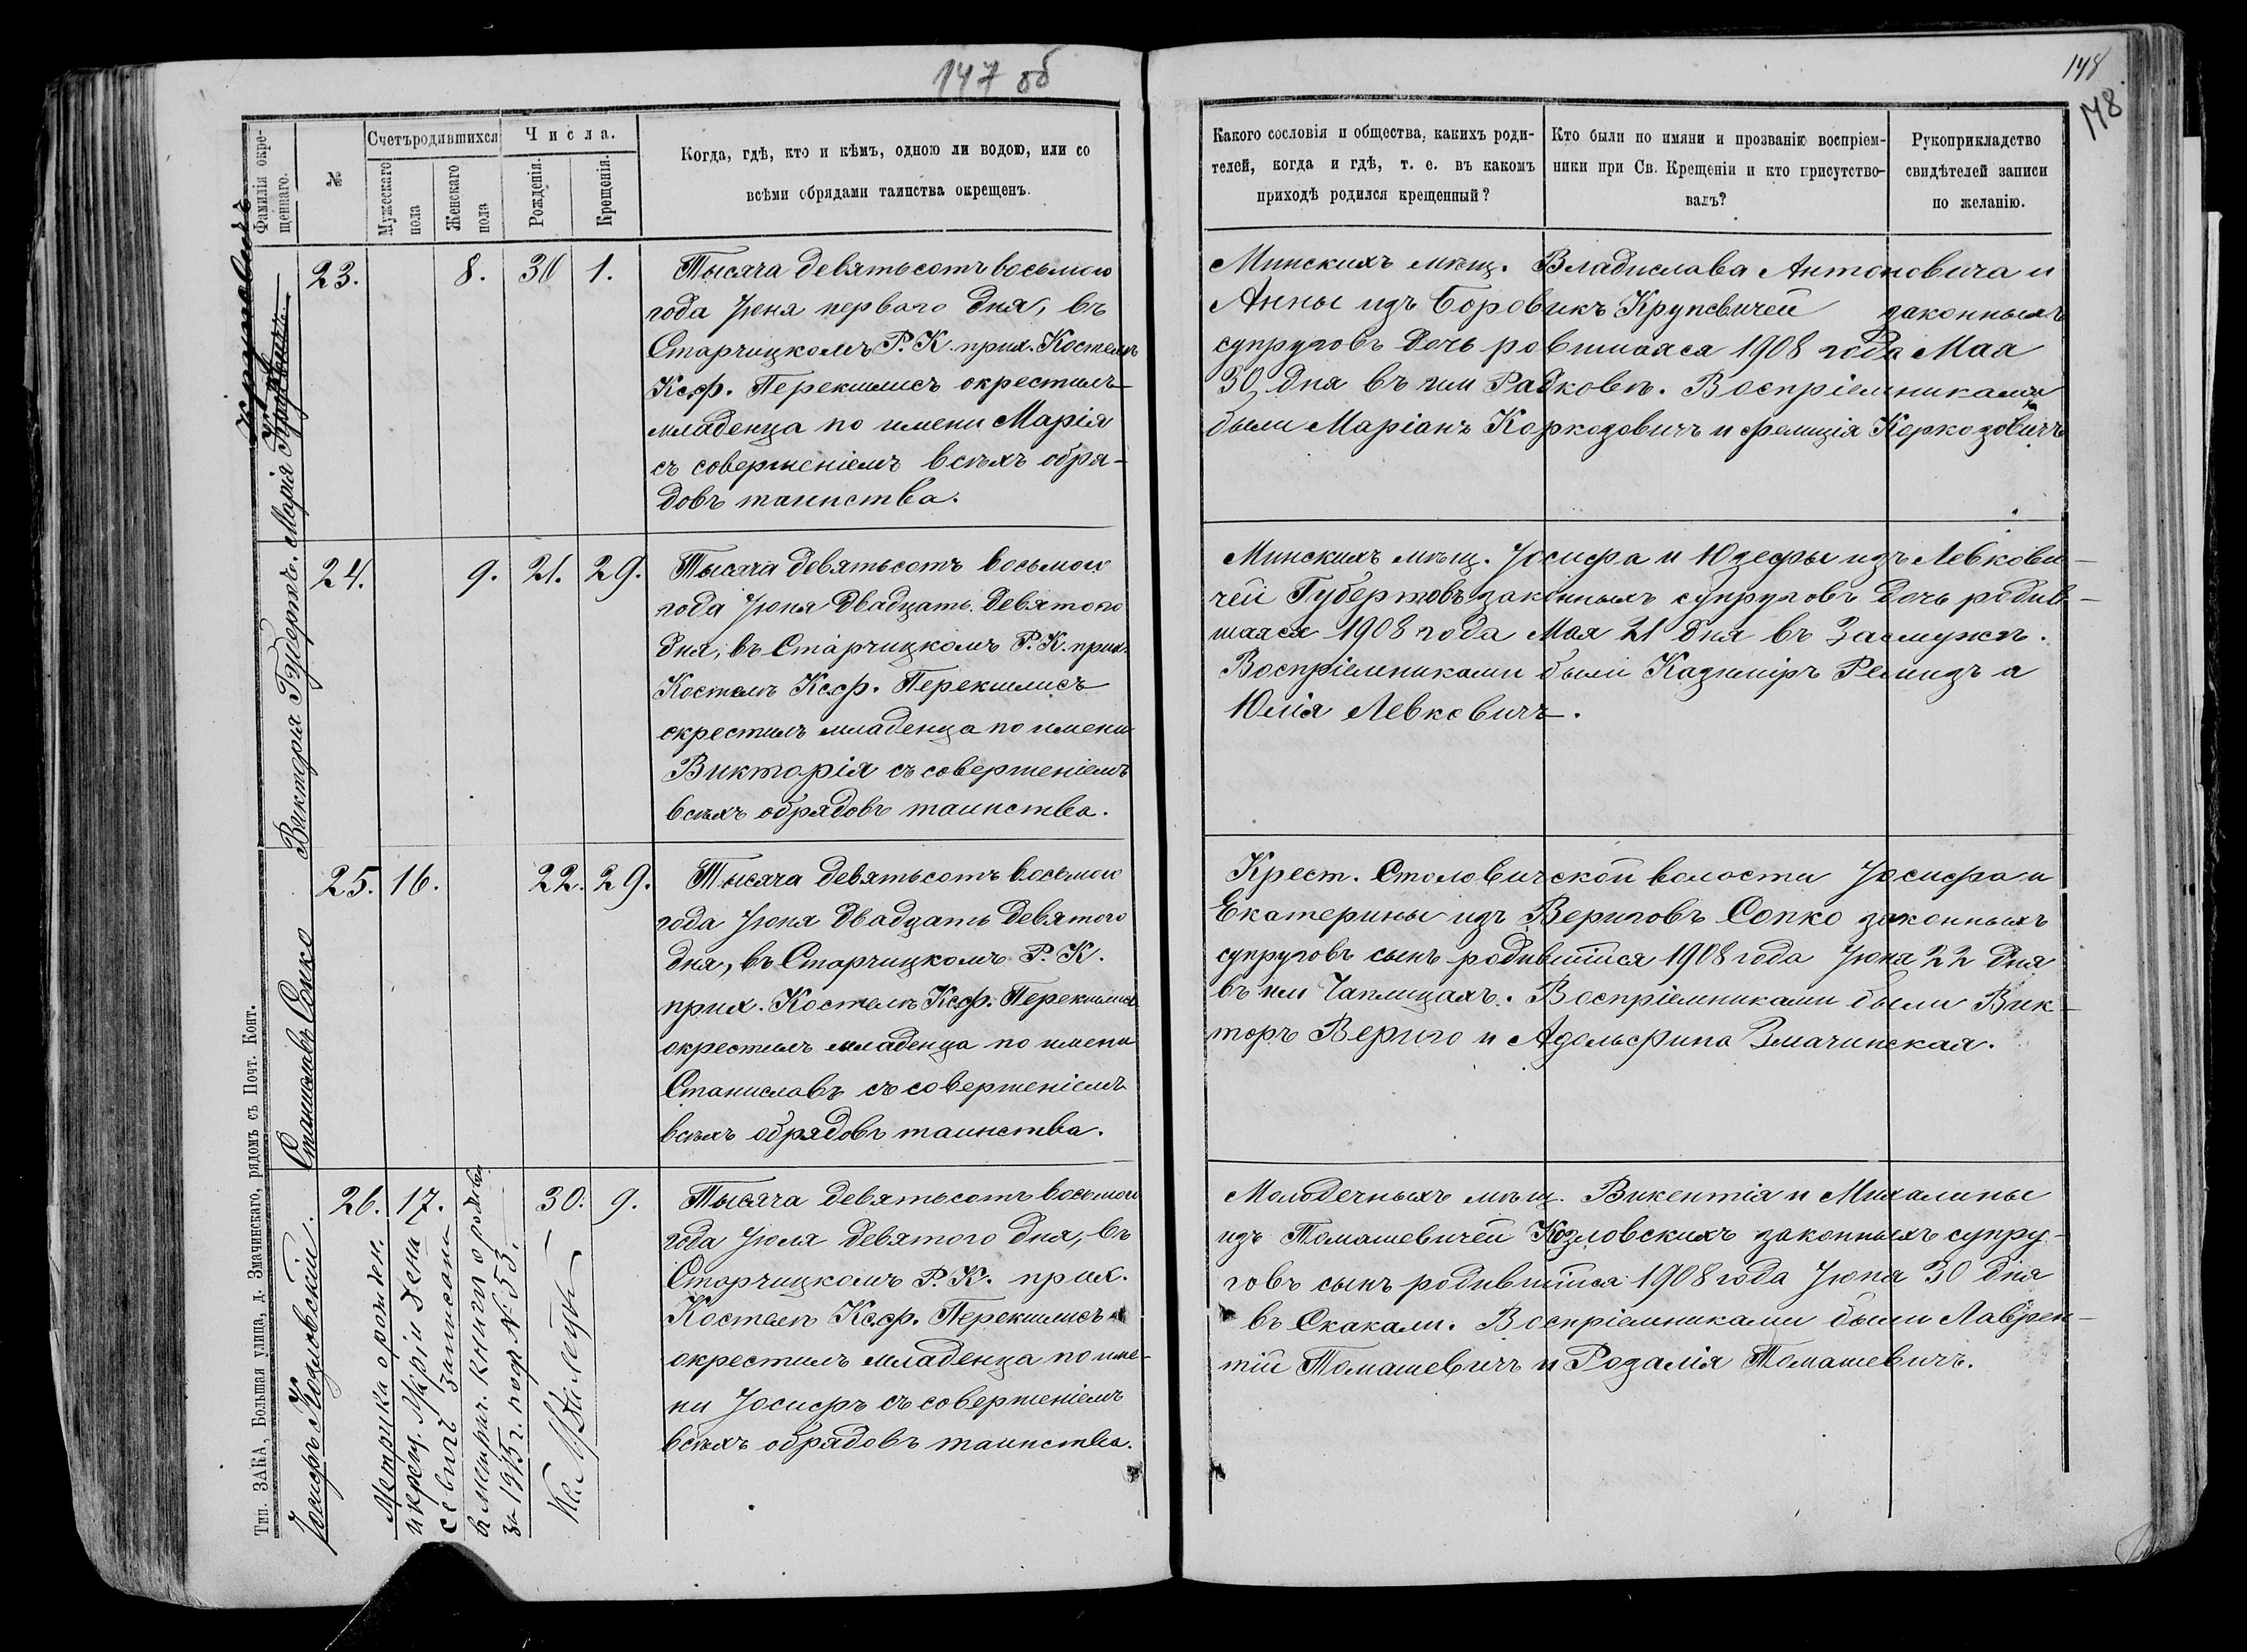 147 об
148
148
Фамилія окре-
щеннаго.
№
Счетъ родившихся
Мужескаго
пола
Женскаго
пола
Числа.
Рожденія.
Крещенія.
Когда, гдѣ, кто и кѣмъ, одною ли водою, или со
всѣми обрядами таинства окрещенъ.
Какого сословія и общества, какихъ роди-
телей, когда и гдѣ, т. е. въ какомъ
приходѣ родился крещенный?
Кто были по имяни и прозванію воспріем-
ники при Св. Крещеніи и кто присутство-
валъ?
Рукоприкладство
свидѣтелей записи
по желанію.
Марія
Крупевичъ
23.
8.
30
1.
Тысяча девятьсотъ восьмого
года Іюня первого дня, въ
Старчицкомъ Р. К. прих. Костелѣ
Ксф. Перекшлисъ окрестилъ
младенца по имени Марія
съ совершеніемъ всѣхъ обря-
довъ таинства.
Минскихъ мѣщ. Владислава Антоновича и
Анны изъ Боровикъ Крупевичей законныхъ
супруговъ дочь родившаяся 1908 года Мая
30 дня въ им Радковѣ. Воспріемниками
были Маріанъ Коркозовичъ и Фелиція Коркозовичъ
Викторія Губертъ.
24.
9.
21.
29.
Тысяча девятьсотъ восьмого
года Іюня двадцать девятого
дня, въ Старчицкомъ Р. К. прих.
Костелѣ Ксф. Перекшлисъ
окрестилъ младенца по имени
Викторія съ совершеніемъ
всѣхъ обрядовъ таинства.
Минскихъ мѣщ. Іосифа и Юзефы изъ Левкови-
чей Губертовъ законныхъ супруговъ дочь родив-
шаяся 1908 года Мая 21 дня въ Засмужѣ.
Воспріемниками были Казиміръ Ремизъ а
Юлія Левковичъ.
Станиславъ Сопко
25.
16.
22.
29.
Тысяча девятьсотъ восьмого
года Іюня двадцать девятого
дня, въ Старчицкомъ Р. К.
прих. Костелѣ Ксф. Перекшлисъ
окрестилъ младенца по имени
Станиславъ съ совершеніемъ
всѣхъ обрядовъ таинства.
Крест. Столовичской волости Іосифа и
Екатерины изъ Вериговъ Сопко законныхъ
супруговъ сынъ родившійся 1908 года Іюня 22 дня
въ им Чаплицахъ. Воспріемниками были Вик-
торъ Вериго и Адольфина Змачинская.
Іосифъ Козловскій.
26.
17.
30.
9.
Тысяча девятьсотъ восьмого
года Іюля девятого дня, въ
Старчицкомъ Р. К. прих.
Костелѣ Ксф. Перекшлисъ
окрестилъ младенца по име-
ни Іосифъ съ совершеніемъ
всѣхъ обрядовъ таинства.
Молодечныхъ мѣщ. Викентія и Михалины
изъ Томашевичей Козловскихъ законныхъ супру-
говъ сынъ родившійся 1908 года Іюня 30 дня
въ Скакали. Воспріемниками были Лаврен-
тій Томашевичъ и Розалія Томашевичъ.
Метрика о рожден.
и крещ. Маріи Дена
севичъ записана
в метрич. книги о родив
за 1915 г. подъ № 53.
Тип. ЗАКА, Большая улица, д. Змачинскаго, рядомъ съ Почт. Конт.